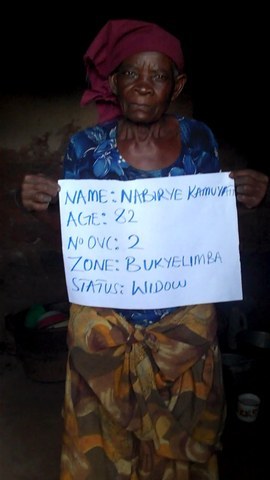 NAME: NABIRYE
AGE: 82
No OVC: 2
ZONE: BUKYELIMBA
STATUS: WIDOW